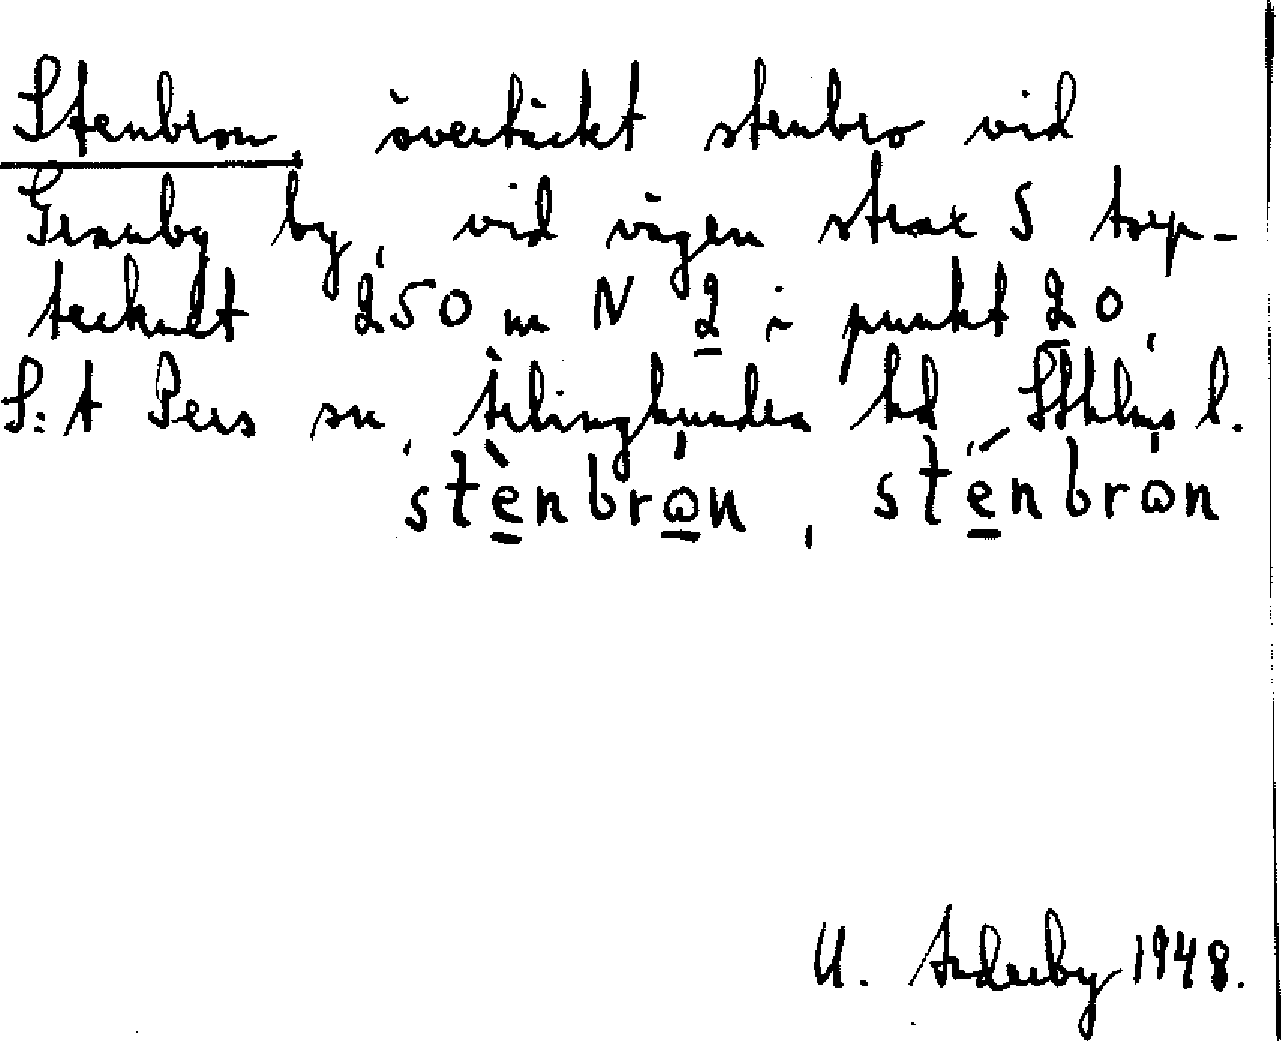 Stenbron, övertäckt stenbro vid
Granby by, vid vägen strax S torp-
tecknet 250 m N 2 i punkt 20,
S:t Pers sn, Ärlinghundra hd, Sthlms l.
stènbrọn, sténbrọn
U. 1948.